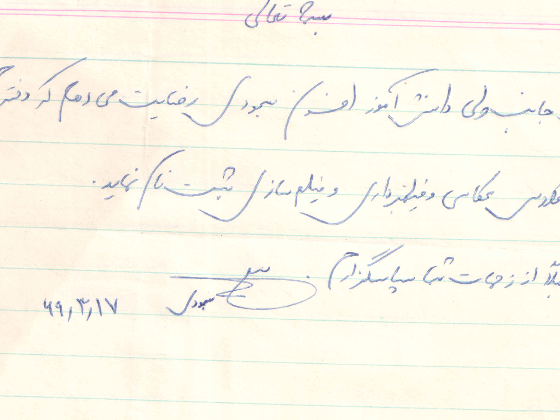 بسمه تعالی
جانب ولی دانش آموز افسون سجودی رضایت می دهم که دفتر
کلاس عکاسی و فیلمبرداری و فیلم سازی ثبت نام نماید.
قبلاً از زحمات شما سپاسگزارم
سجودی ۶۹,۳,۱۷